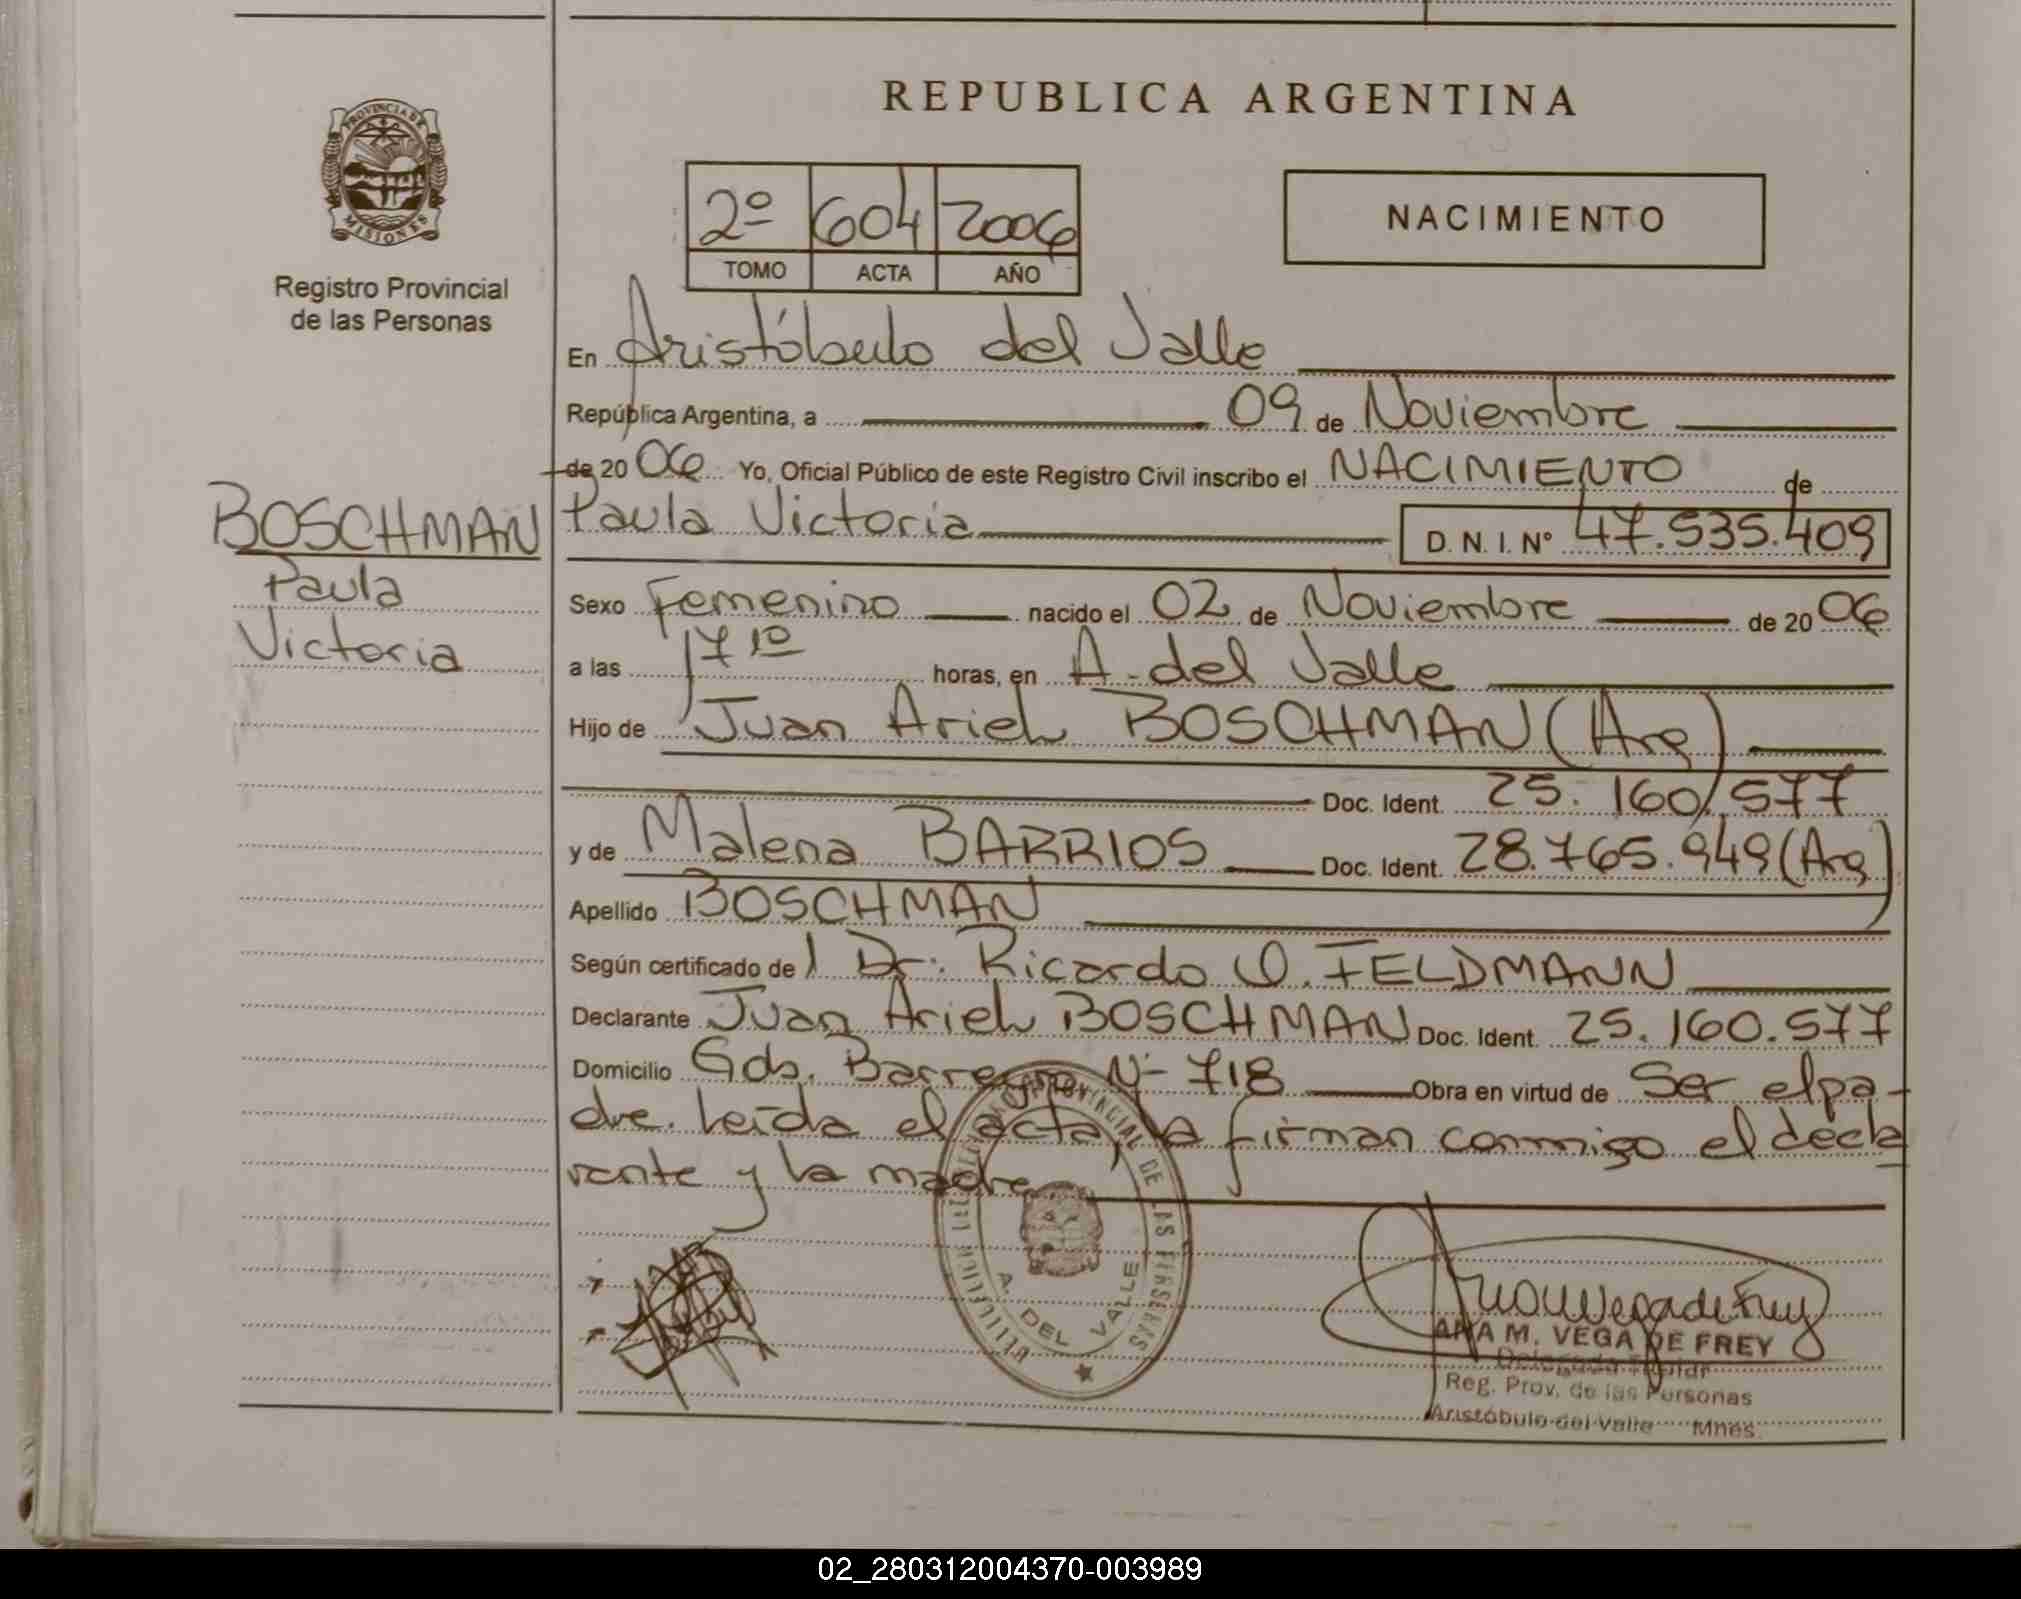 REPUBLICA ARGENTINA
PROVINCIA DE MISIONES
Registro Provincial
de las Personas
2º 604 2006
TOMO ACTA AÑO
NACIMIENTO
En Aristóbulo del Valle
República Argentina, a 09 de Noviembre
de 20 06 Yo, Oficial Público de este Registro Civil inscribo el NACIMIENTO de
BOSCHMAN
Paula
Victoria
Paula Victoria D. N. I. Nº 47.535.409
Sexo Femenino nacido el 02 de Noviembre de 20 06
a las 17 10 horas, en A. del Valle
Hijo de Juan Ariel BOSCHMAN (Arg)
Doc. Ident. 25.160.577
y de Malena BARRIOS Doc. Ident. 28.765.949 (Arg)
Apellido BOSCHMAN
Según certificado del Dr. Ricardo O. FELDMANN
Declarante Juan Ariel BOSCHMAN Doc. Ident. 25.160.577
Domicilio Gdor. Barreyro Nº 718 Obra en virtud de Ser el pa-
dre. Leída el acta, la firman conmigo el decla
rante y la madre
PROVINCIAL DE LAS PERSONAS
A. DEL VALLE
Ana M Vega de Frey
ANA M. VEGA DE FREY
Delegada Titular
Reg. Prov. de las Personas
Aristóbulo del Valle Mnes.
02_280312004370-003989